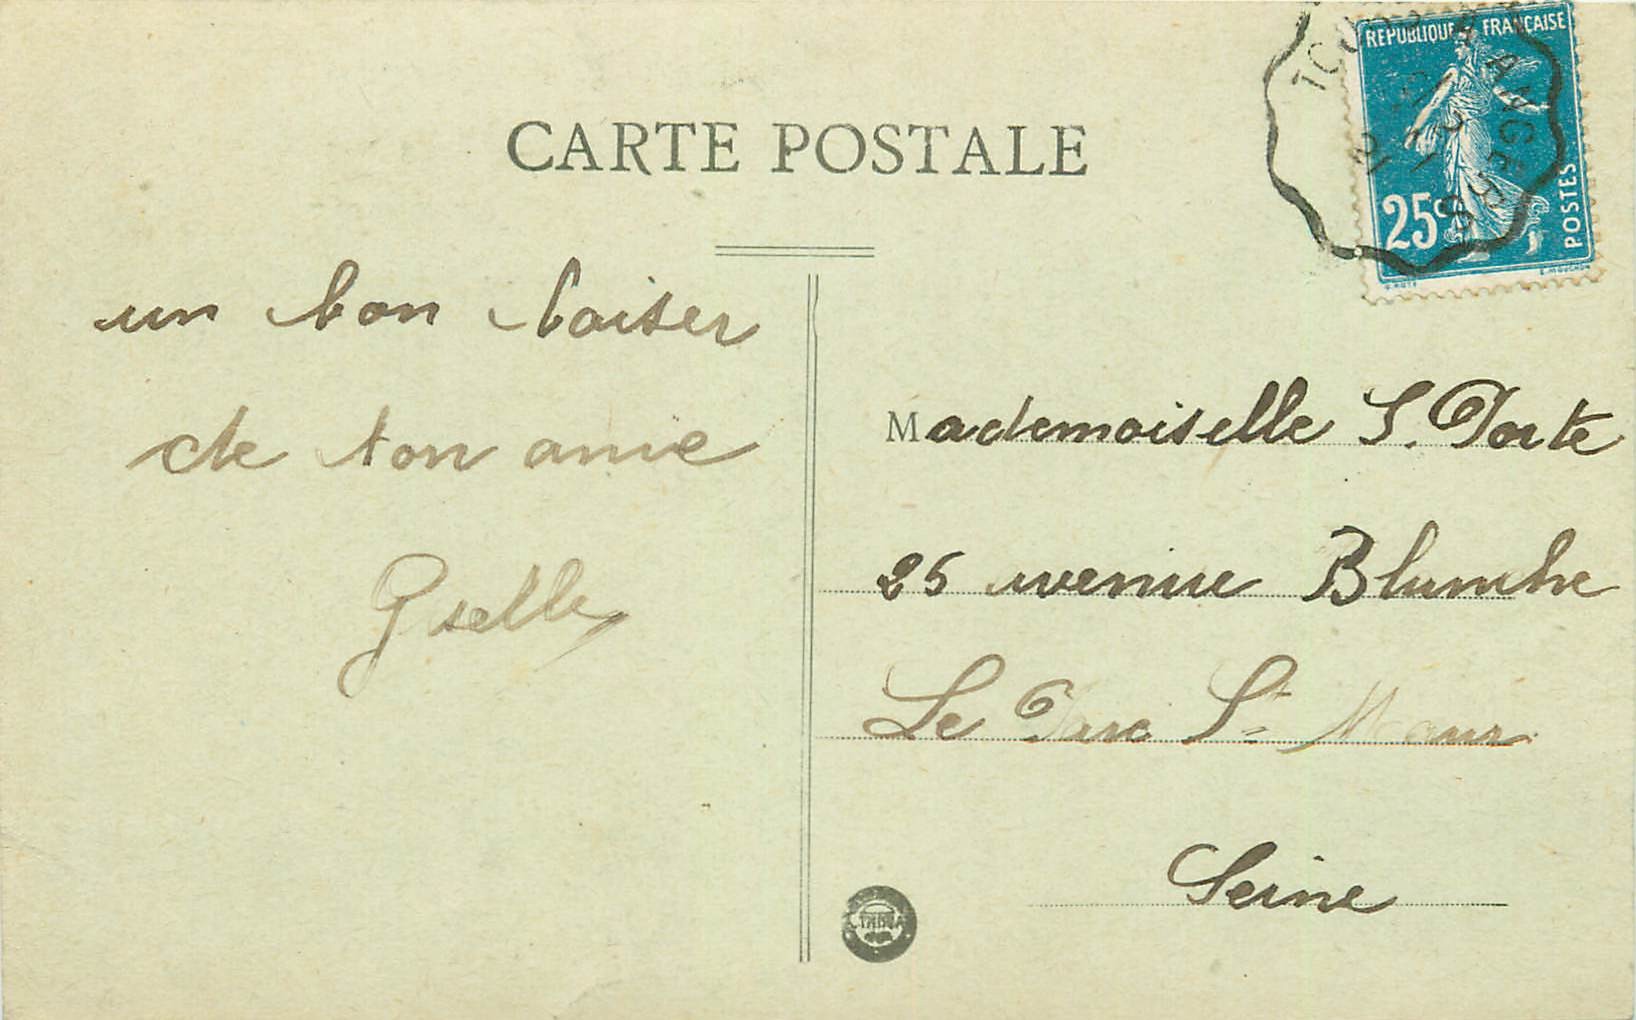 CARTE POSTALE
REPUBLIQUE FRANÇAISE
25c
POSTES
TOURS A ANGERS
un bon baiser
de ton amie
Gselle
Mademoiselle S. Porte
25 avenue Blanche
Le Parc St Maur
Seine